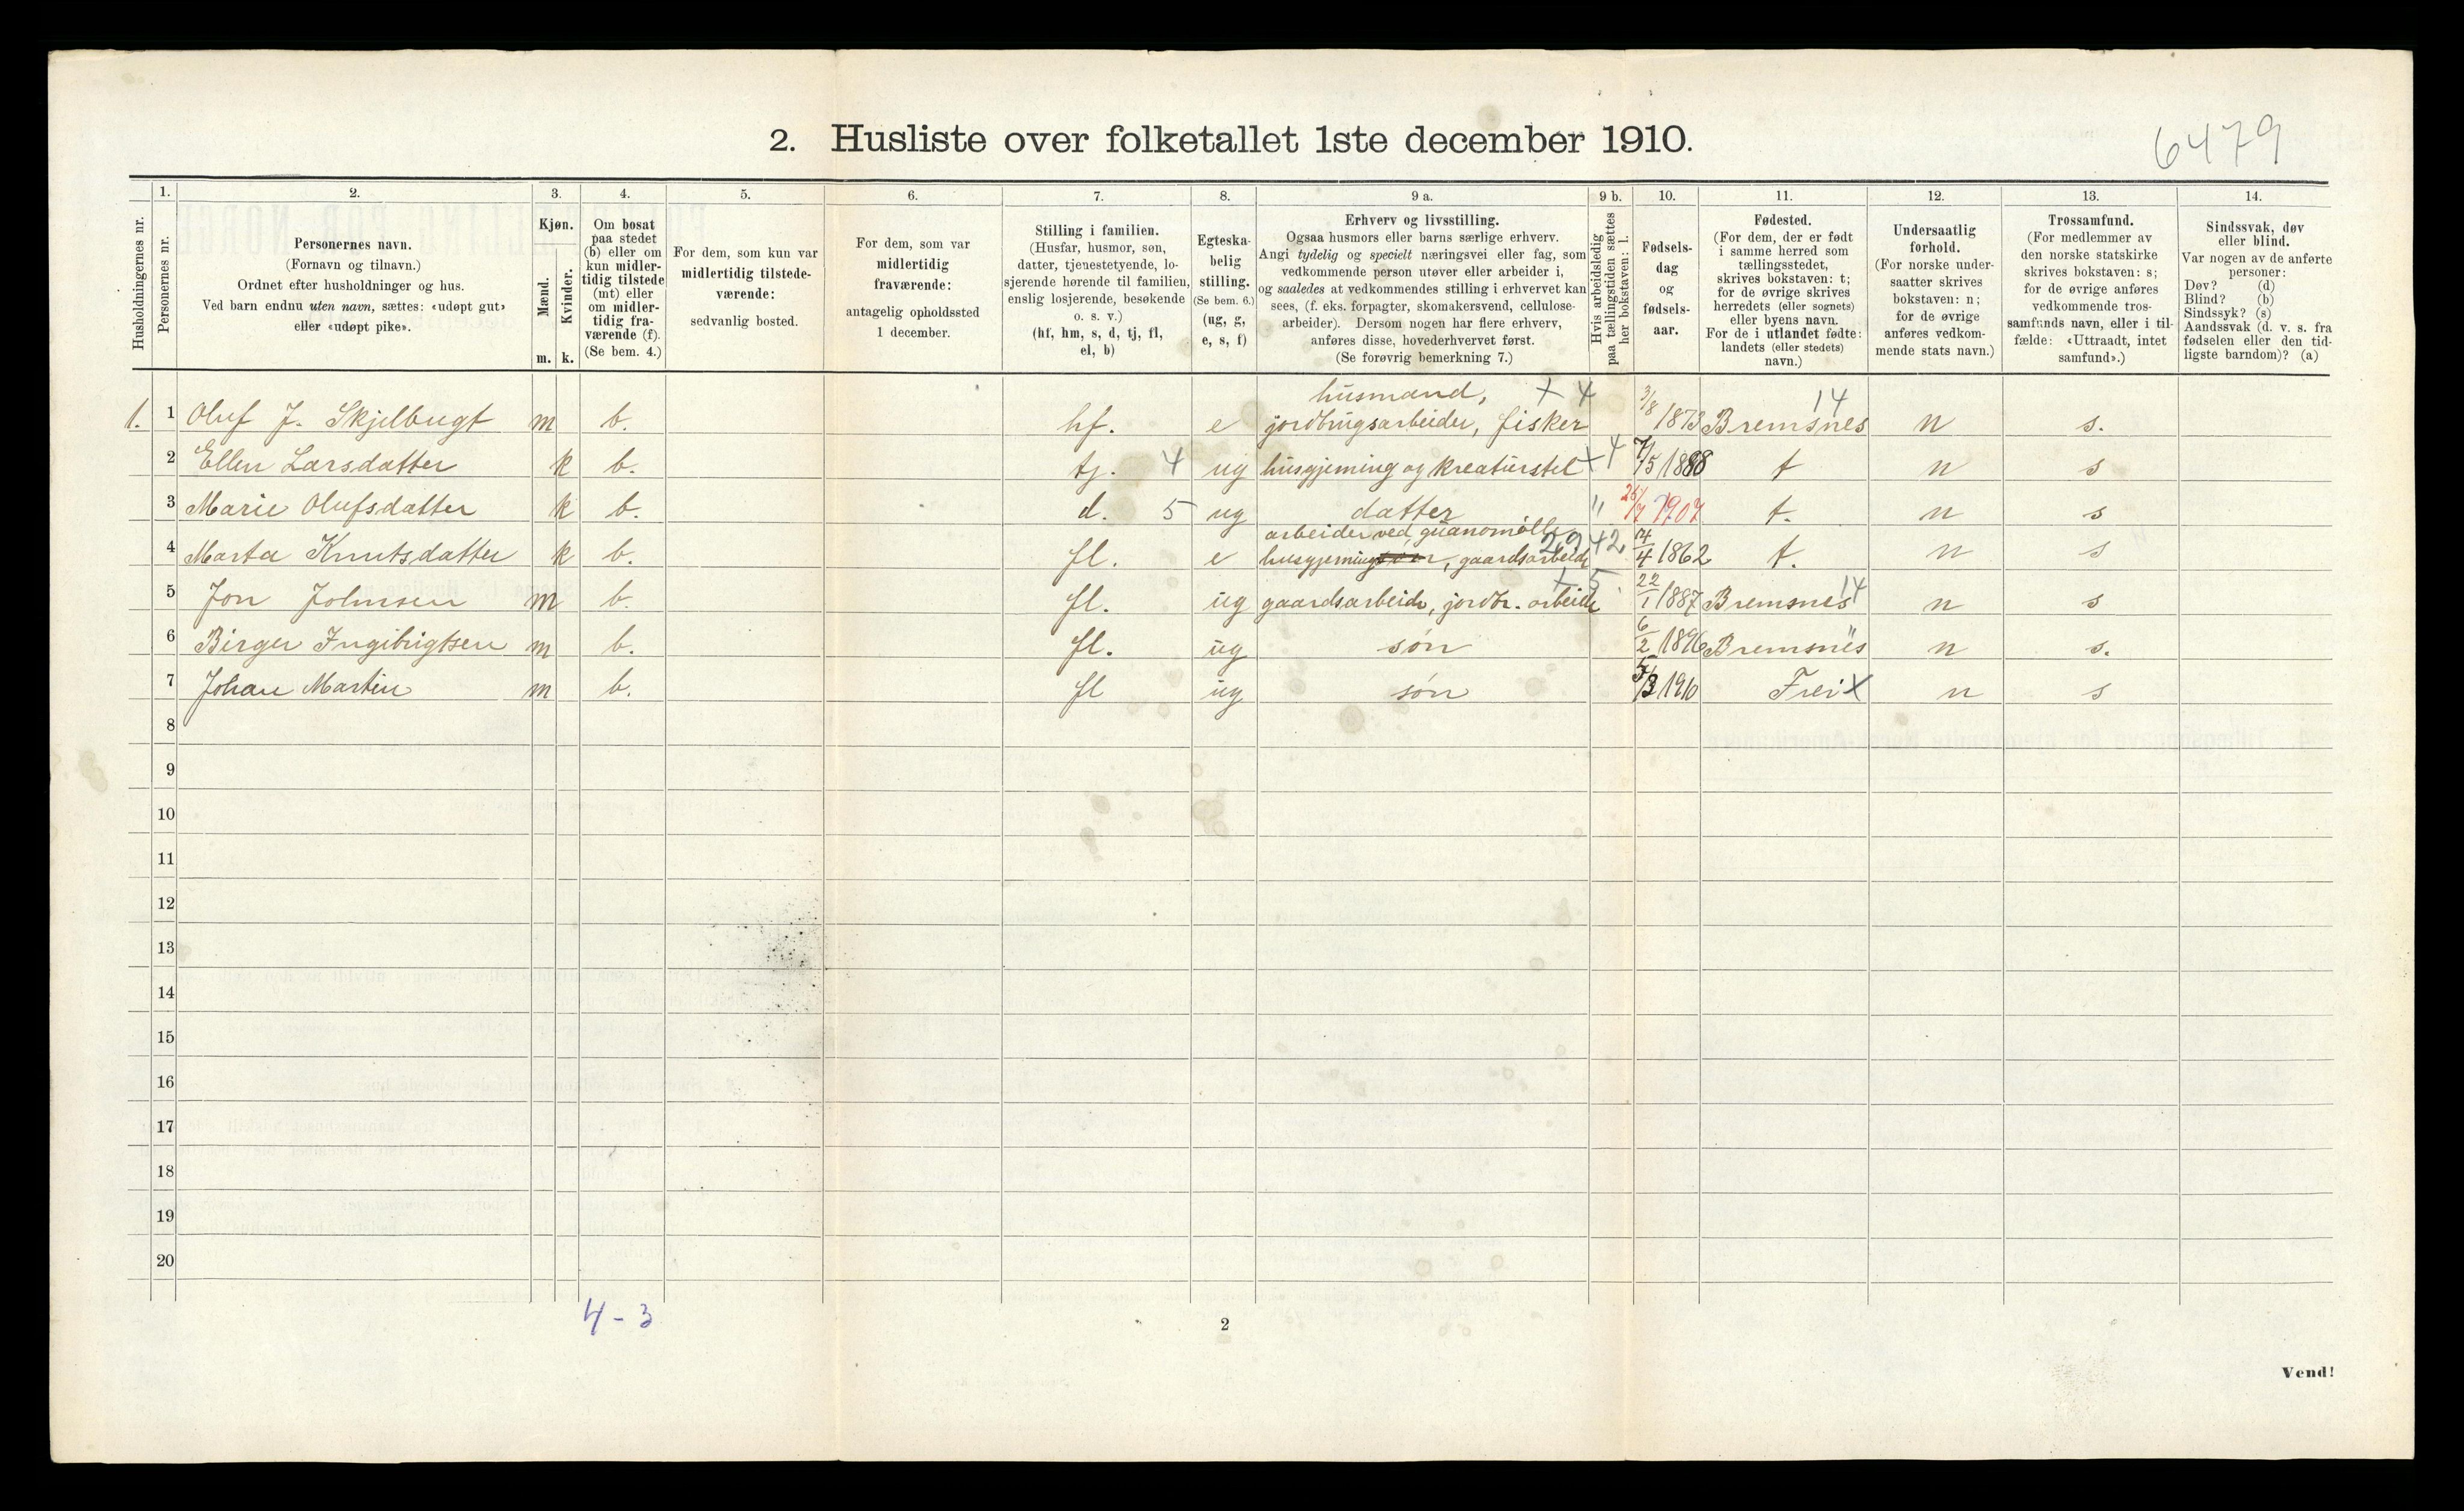 6479
2. Husliste over folketallet 1ste december 1910.
Husholdningernes nr.
1.
Personernes nr.
2.
Personernes navn.
(Fornavn og tilnavn.)
Ordnet efter husholdninger og hus.
Ved barn endnu uten navn, sættes: «udøpt gut»
eller «udøpt pike».
3.
Kjøn.
Mænd.
Kvinder.
m. k.
4.
Om bosat
paa stedet
(b) eller om
kun midler-
tidig tilstede
(mt) eller
om midler-
tidig fra-
værende (f).
(Se bem. 4.)
5.
For dem, som kun var
midlertidig tilstede-
værende:
sedvanlig bosted.
6.
For dem, som var
midlertidig
fraværende:
antagelig opholdssted
1 december.
7.
Stilling i familien.
(Husfar, husmor, søn,
datter, tjenestetyende, lo-
sjerende hørende til familien,
enslig losjerende, besøkende
o. s. v.)
(hf, hm, s, d, tj, fl,
el, b)
8.
Egteska-
belig
stilling.
(Se bem. 6.)
(ug, g,
e, s, f)
9 a.
Erhverv og livsstilling.
Ogsaa husmors eller barns særlige erhverv.
Angi tydelig og specielt næringsvei eller fag, som
vedkommende person utøver eller arbeider i,
og saaledes at vedkommendes stilling i erhvervet kan
sees, (f. eks. forpagter, skomakersvend, cellulose-
arbeider). Dersom nogen har flere erhverv,
anføres disse, hovederhvervet først.
(Se forøvrig bemerkning 7.)
9 b.
Hvis arbeidsledig
paa tællingstiden sættes
her bokstaven: l.
10.
Fødsels-
dag
og
fødsels-
aar.
11.
Fødested.
(For dem, der er født
i samme herred som
tællingsstedet,
skrives bokstaven: t;
for de øvrige skrives
herredets (eller sognets)
eller byens navn.
For de i utlandet fødte:
landets (eller stedets)
navn.)
12.
Undersaatlig
forhold.
(For norske under-
saatter skrives
bokstaven: n;
for de øvrige
anføres vedkom-
mende stats navn.)
13.
Trossamfund.
(For medlemmer av
den norske statskirke
skrives bokstaven: s;
for de øvrige anføres
vedkommende tros-
samfunds navn, eller i til-
fælde: «Uttraadt, intet
samfund».)
14.
Sindssvak, døv
eller blind.
Var nogen av de anførte
personer:
Døv? (d)
Blind? (b)
Sindssyk? (s)
Aandssvak (d. v. s. fra
fødselen eller den tid-
ligste barndom)? (a)
husmand, + 4 14
1. 1 Oluf J. Skjelbugt m b. hf. e jordbrugsarbeider, fisker 3/8 1873 Bremsnes n s.
2 Ellen Larsdatter k b. tj. 4 ug husgjerning og kreaturstel + 4 7/5 1888 t n s
3 Marie Olufsdatter k b. d. 5 ug datter " 1907 t. n s
arbeider ved guanomølle
4 Marta Knutsdatter k b. fl. e husgjerning, gaardsarbeide 4/4 1862 t. n s
5 Jon Johnsen m b. fl. ug gaardsarbeide, jordbr. arbeide + 5 22/1 1887 Bremsnes 14 n s
6 Birger Ingibrigtsen m b. fl. ug søn 6/2 1896 Bremsnes " n s.
7 Johan Martin m b. fl ug søn 5/3 1910 Frei X n s
8
9
10
11
12
13
14
15
16
17
18
19
20
4 - 3
2
Vend!